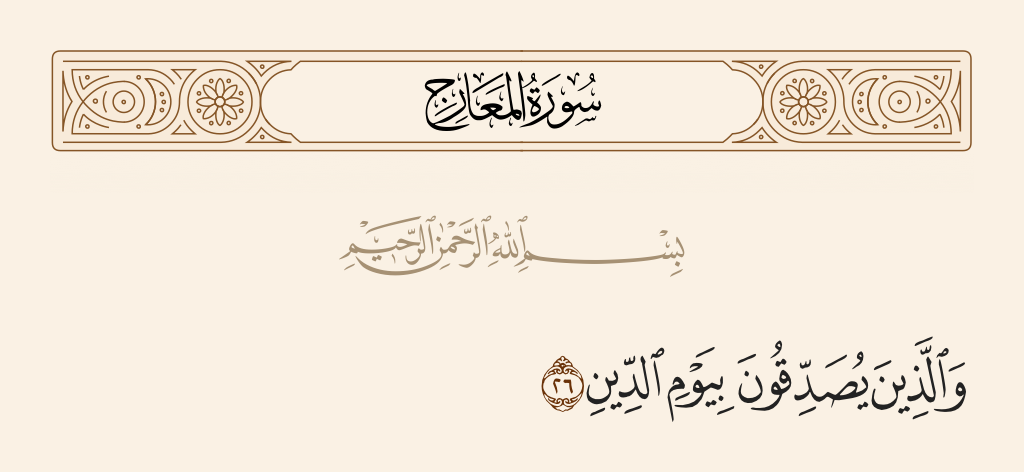 سُورَةُ المَعَارِجِ
بِسْمِ ٱللَّهِ ٱلرَّحْمَٰنِ ٱلرَّحِيمِ
وَٱلَّذِينَ يُصَدِّقُونَ بِيَوْمِ ٱلدِّينِ ٢٦